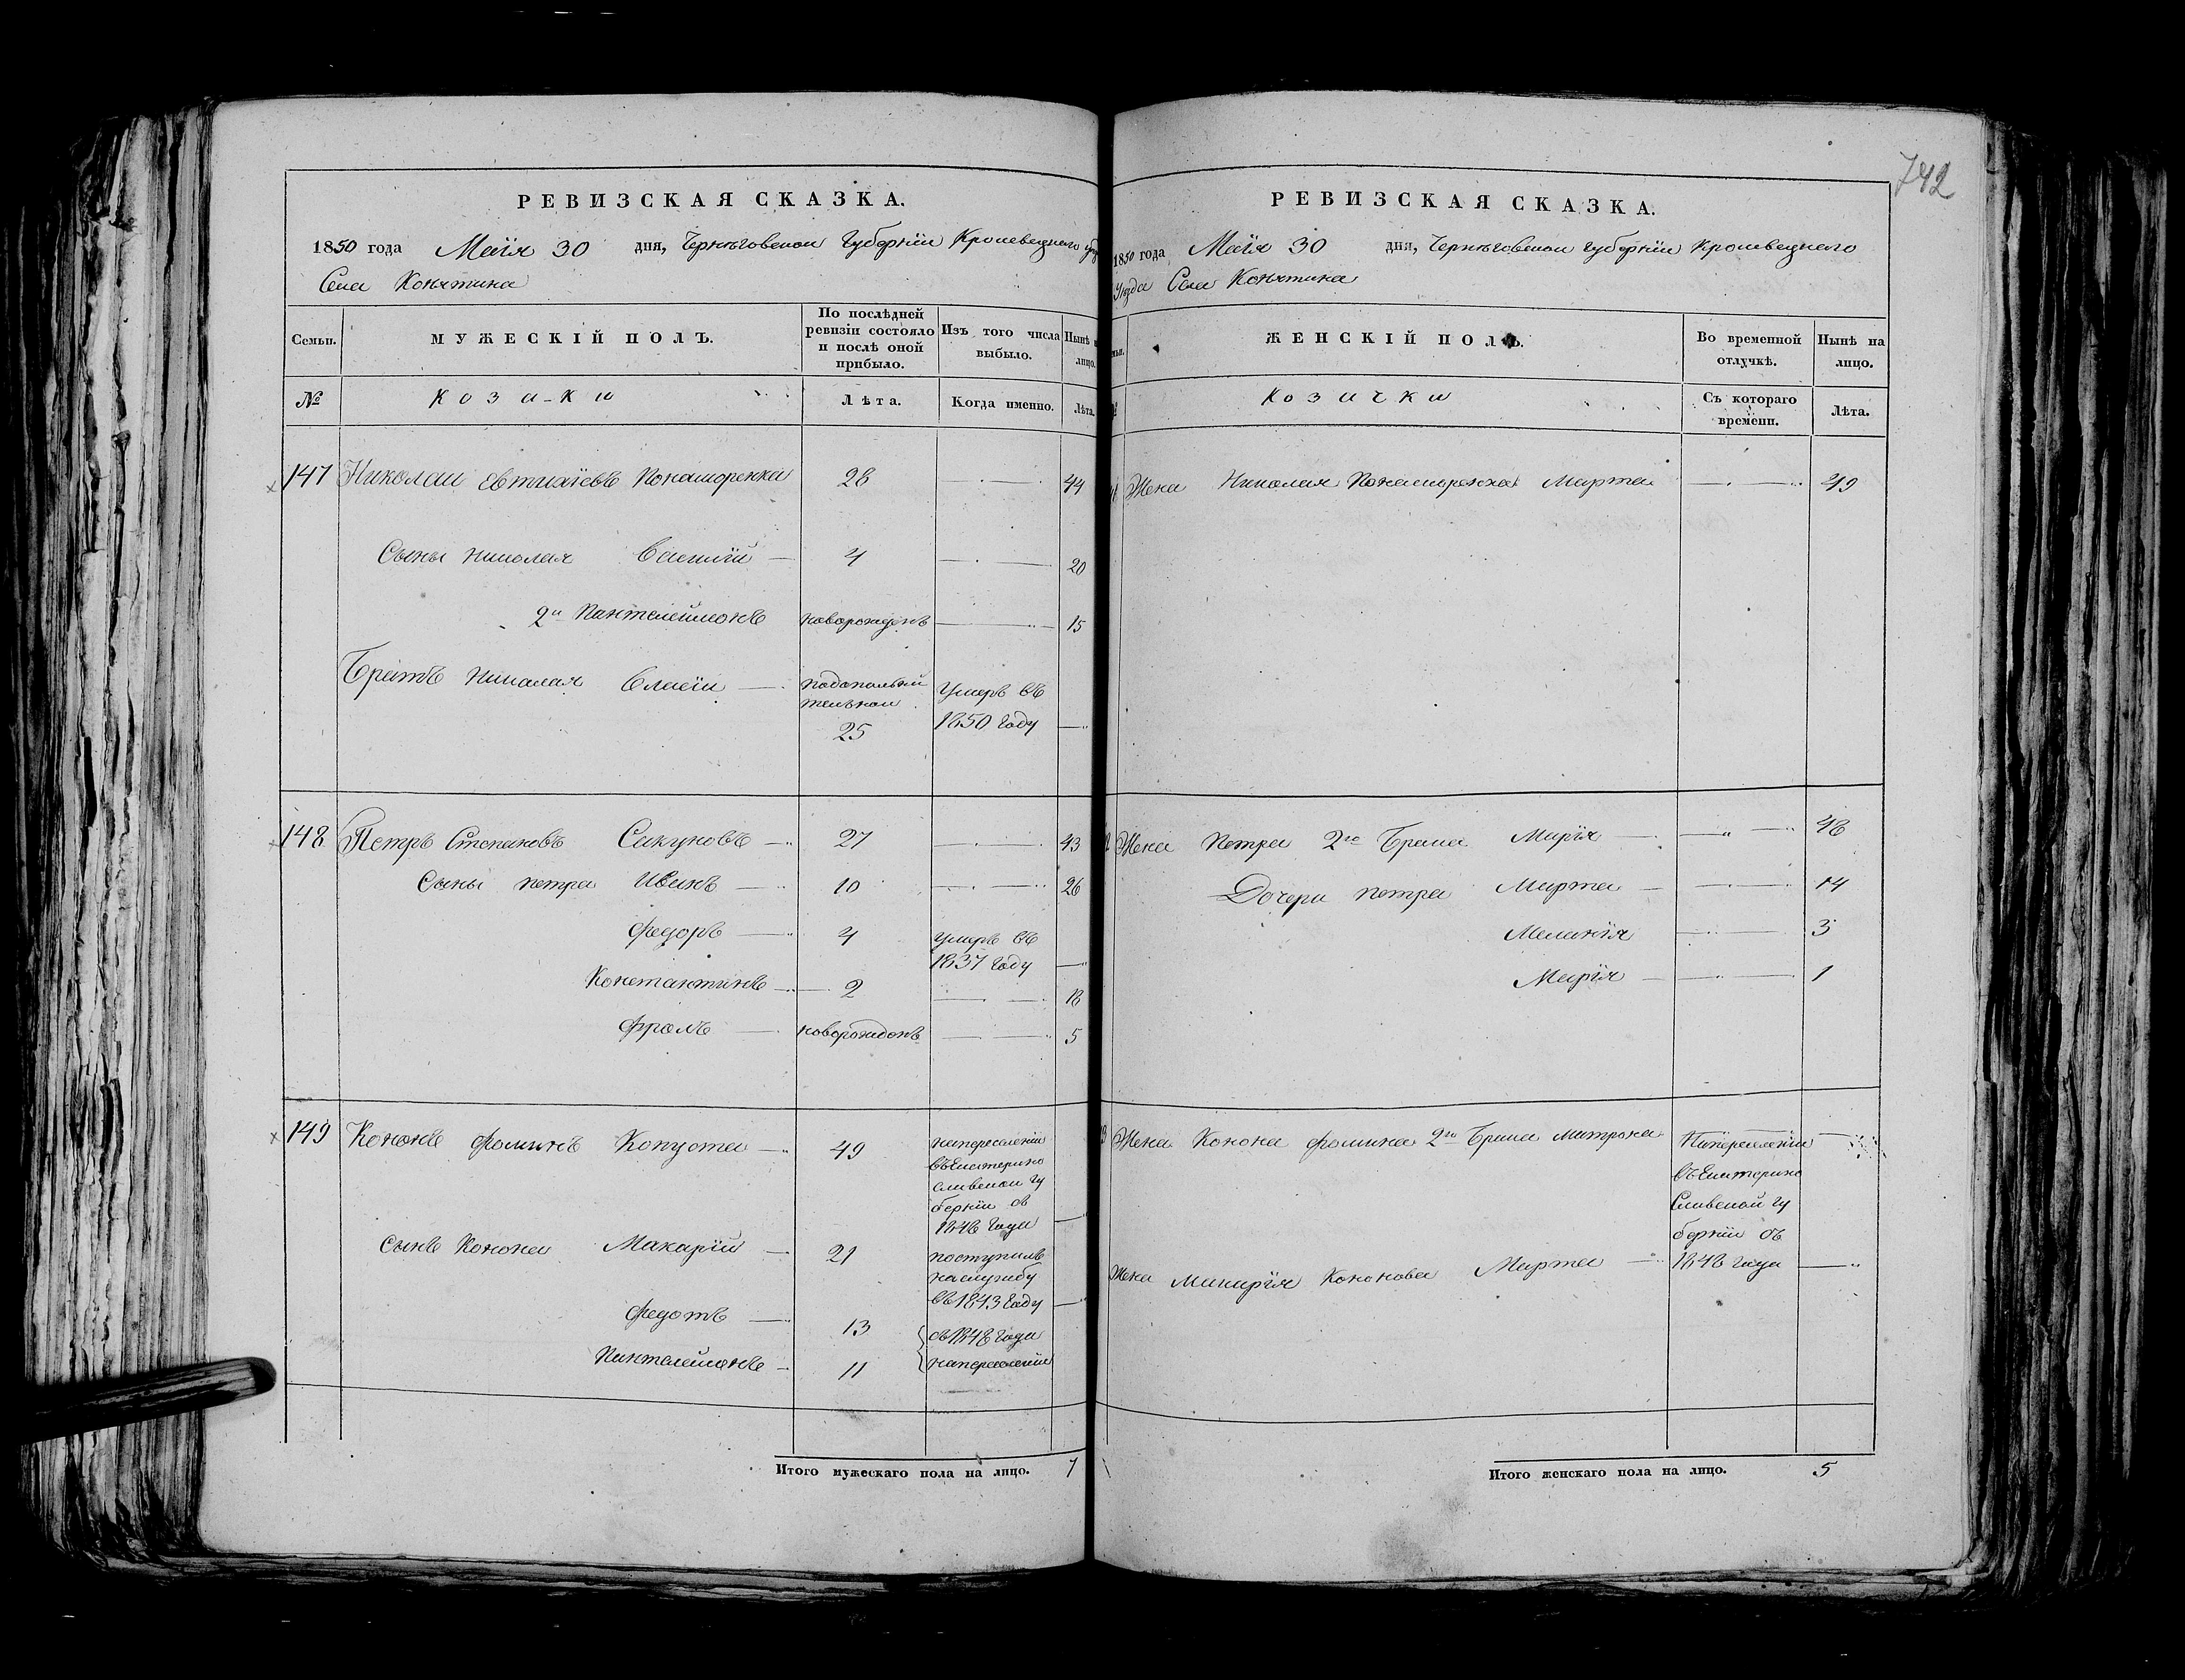 742
РЕВИЗСКАЯ СКАЗКА.
1850 года Маія 30 дня, Черниговской Губерніи Кролевецкого
Села Конятина
Семьи. МУЖЕСКІЙ ПОЛЪ. По послѣдней ревизіи состояло и послѣ оной прибыло. Изъ того числа выбыло. Нынѣ на лицо.
№ Козаки Лѣта. Когда именно. Лѣта.
147 Николай Понаморенка 28 44
Сыны Николая Василій 4 20
2й Пантелеймонъ новорожденъ 15
Братъ Николая Власій 25 Умеръ въ
1850 Году
148 Петръ Степановъ Сакуновъ 27 43
Сыны петра Иванъ 10 26
Федоръ 4 умеръ въ
1837 Году
Константинъ 2 18
Фролъ новорожденъ 5
149 Кононъ Фоминъ Капуста 49 напереселеніи
въ Екатерино
славской гу
берніи съ
1848 Года
Сынъ Конона Макарій 21 поступилъ
наслужбу
въ 1843 Году
Федотъ 13 съ 1848 Года
Пантелеймонъ 11 напереселеніи
Итого мужескаго пола на лицо. 7
РЕВИЗСКАЯ СКАЗКА.
1850 года Маія 30 дня, Черниговской Губерніи Кролевецкого
Уезда Села Конятина
ЖЕНСКІЙ ПОЛЪ. Во временной отлучкѣ. Нынѣ на лицо.
Козачки Съ котораго времени. Лѣта.
Жена Николая Понаморенка Марфа 49
Жена Петра 2го Брака Марія 48
Дочери петра Марфа 14
Меланія 3
Марія 1
Жена Конона Фомина 2го Брака Матрона Напереселеніи
въ Екатерино
Славской гу
берніи съ
Жена Макарія Кононова Марфа 1848 Года
Итого женскаго пола на лицо. 5